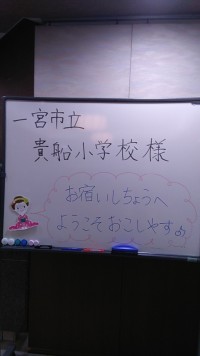 一宮市立
貴船小学校様
お宿いしちょうへ
ようこそおこしやすぅ